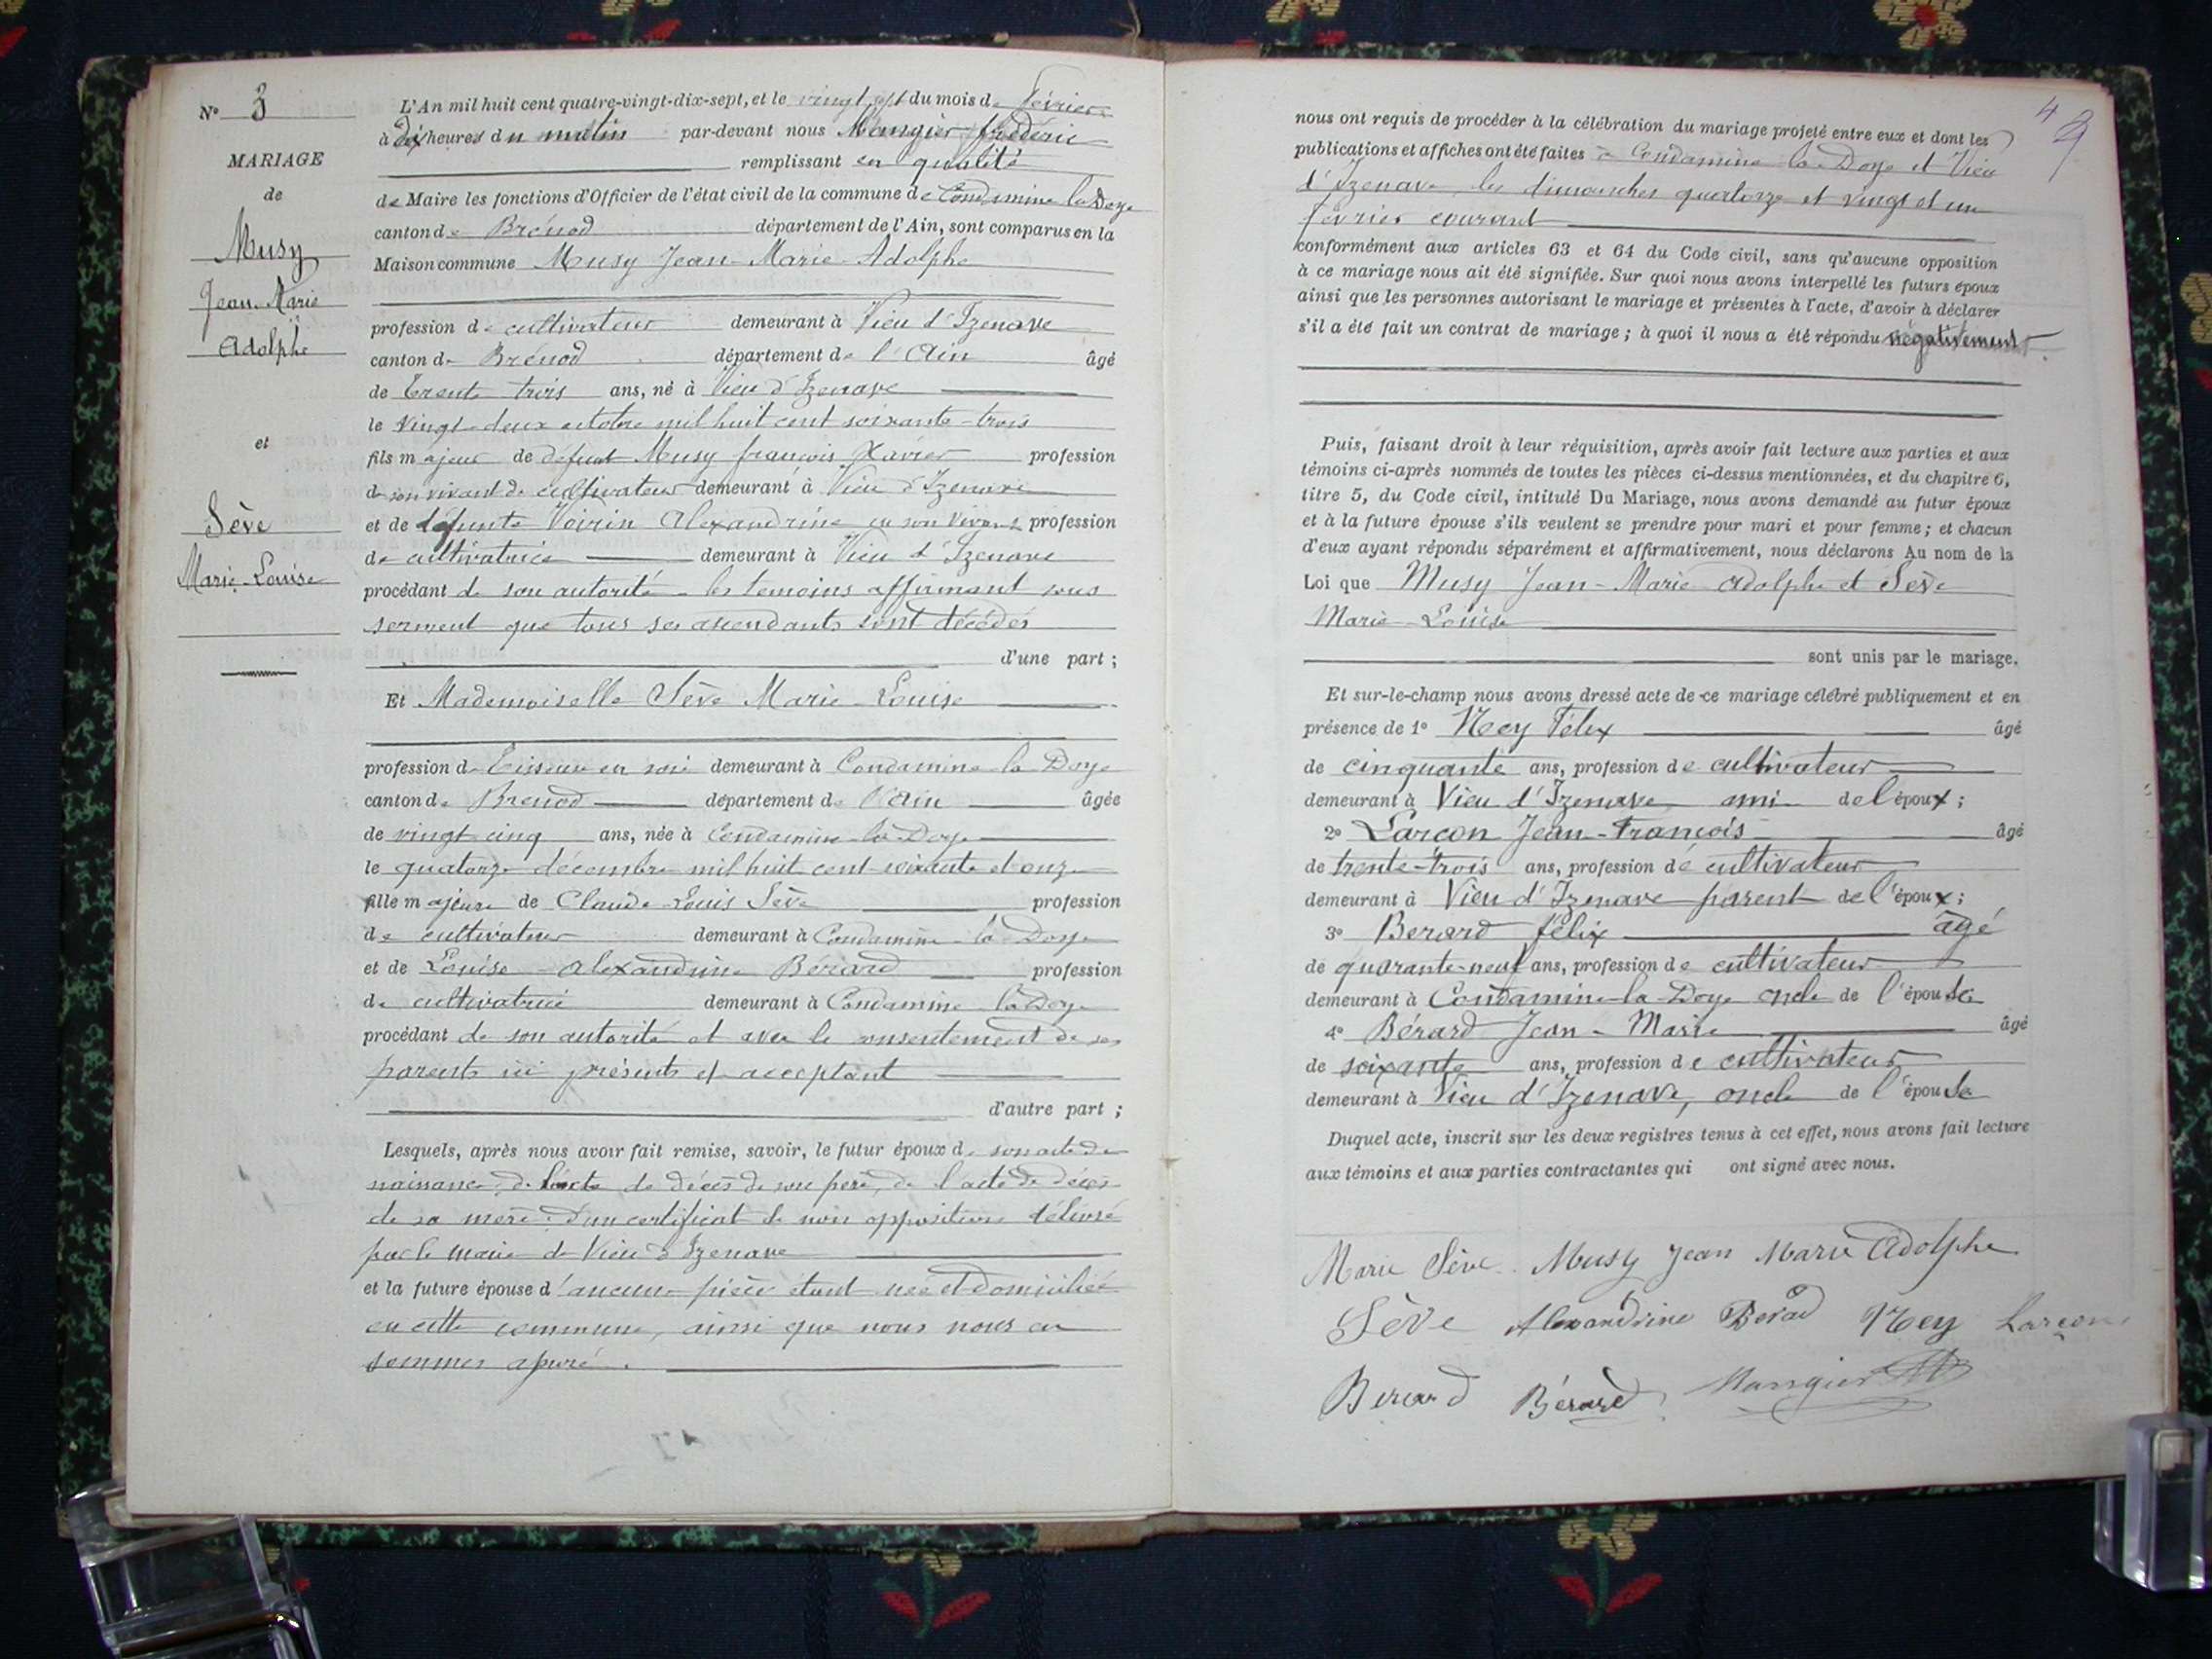 N° 3
MARIAGE
de
Musy
Jean-Marie
Adolphe
et
Sève
Marie-Louise
L'An mil huit cent quatre-vingt-dix-sept, et le vingt sept du mois de février
à dix heures du matin par-devant nous Mangier frédéric
remplissant en qualité
de Maire les fonctions d'Officier de l'état civil de la commune de Condamine la Doye
canton de Brénod département de l'Ain, sont comparus en la
Maison commune Musy Jean-Marie-Adolphe
profession de cultivateur demeurant à Vieu d'Izenave
canton de Brénod département de l'Ain âgé
de trente trois ans, né à Vieu d'Izenave
le vingt-deux octobre mil huit cent soixante-trois
fils majeur de défunt Musy françois Xavier profession
de son vivant de cultivateur demeurant à Vieu d'Izenave
et de défunte Voirin Alexandrine en son vivant profession
de cultivatrice demeurant à Vieu d'Izenave
procédant de son autorité les temoins affirmant sous
serment que tous ses ascendants sont décédés
d'une part ;
Et Mademoiselle Sève Marie-Louise
profession de Tisseuse en soie demeurant à Condamine-la-Doye
canton de Brenod département de l'Ain âgée
de vingt-cinq ans, née à Condamine-la-Doye
le quatorze décembre mil huit cent soixante et onze
fille majeure de Claude-Louis Sève profession
de cultivateur demeurant à Condamine-la-Doye
et de Louise-Alexandrine Bérard profession
de cultivatrice demeurant à Condamine-la-Doye
procédant de son autorité et avec le consentement de ses
parents ici présents et acceptant
d'autre part ;
Lesquels, après nous avoir fait remise, savoir, le futur époux de son acte de
naissance, de l'acte de décès de son père, de l'acte de décès
de sa mère, d'un certificat de non opposition délivré
par le maire de Vieu d'Izenave
et la future épouse d'aucune pièce étant née et domiciliée
en cette commune, ainsi que nous nous en
sommes apuré.
4
nous ont requis de procéder à la célébration du mariage projeté entre eux et dont les
publications et affiches ont été faites à Condamine-la-Doye et Vieu
d'Izenave, les dimanches quatorze et vingt et un
février courant
conformément aux articles 63 et 64 du Code civil, sans qu'aucune opposition
à ce mariage nous ait été signifiée. Sur quoi nous avons interpellé les futurs époux
ainsi que les personnes autorisant le mariage et présentes à l'acte, d'avoir à déclarer
s'il a été fait un contrat de mariage ; à quoi il nous a été répondu négativement
Puis, faisant droit à leur réquisition, après avoir fait lecture aux parties et aux
témoins ci-après nommés de toutes les pièces ci-dessus mentionnées, et du chapitre 6,
titre 5, du Code civil, intitulé Du Mariage, nous avons demandé au futur époux
et à la future épouse s'ils veulent se prendre pour mari et pour femme ; et chacun
d'eux ayant répondu séparément et affirmativement, nous déclarons Au nom de la
Loi que Musy Jean-Marie-Adolphe et Sève
Marie-Louise
sont unis par le mariage.
Et sur-le-champ nous avons dressé acte de ce mariage célébré publiquement et en
présence de 1° Ney Félix âgé
de cinquante ans, profession de cultivateur
demeurant à Vieu d'Izenave ami de l'époux ;
2° Larcon Jean-François âgé
de trente-trois ans, profession de cultivateur
demeurant à Vieu d'Izenave parent de l'époux ;
3° Berard félix âgé
de quarante-neuf ans, profession de cultivateur
demeurant à Condamine-la-Doye oncle de l'épouse
4° Bérard Jean-Marie âgé
de soixante ans, profession de cultivateur
demeurant à Vieu d'Izenave, oncle de l'épouse
Duquel acte, inscrit sur les deux registres tenus à cet effet, nous avons fait lecture
aux témoins et aux parties contractantes qui ont signé avec nous.
Marie Sève Musy Jean Marie Adolphe
Sève Alexandrine Berad Ney Larçon
Berard Bérard Mangier